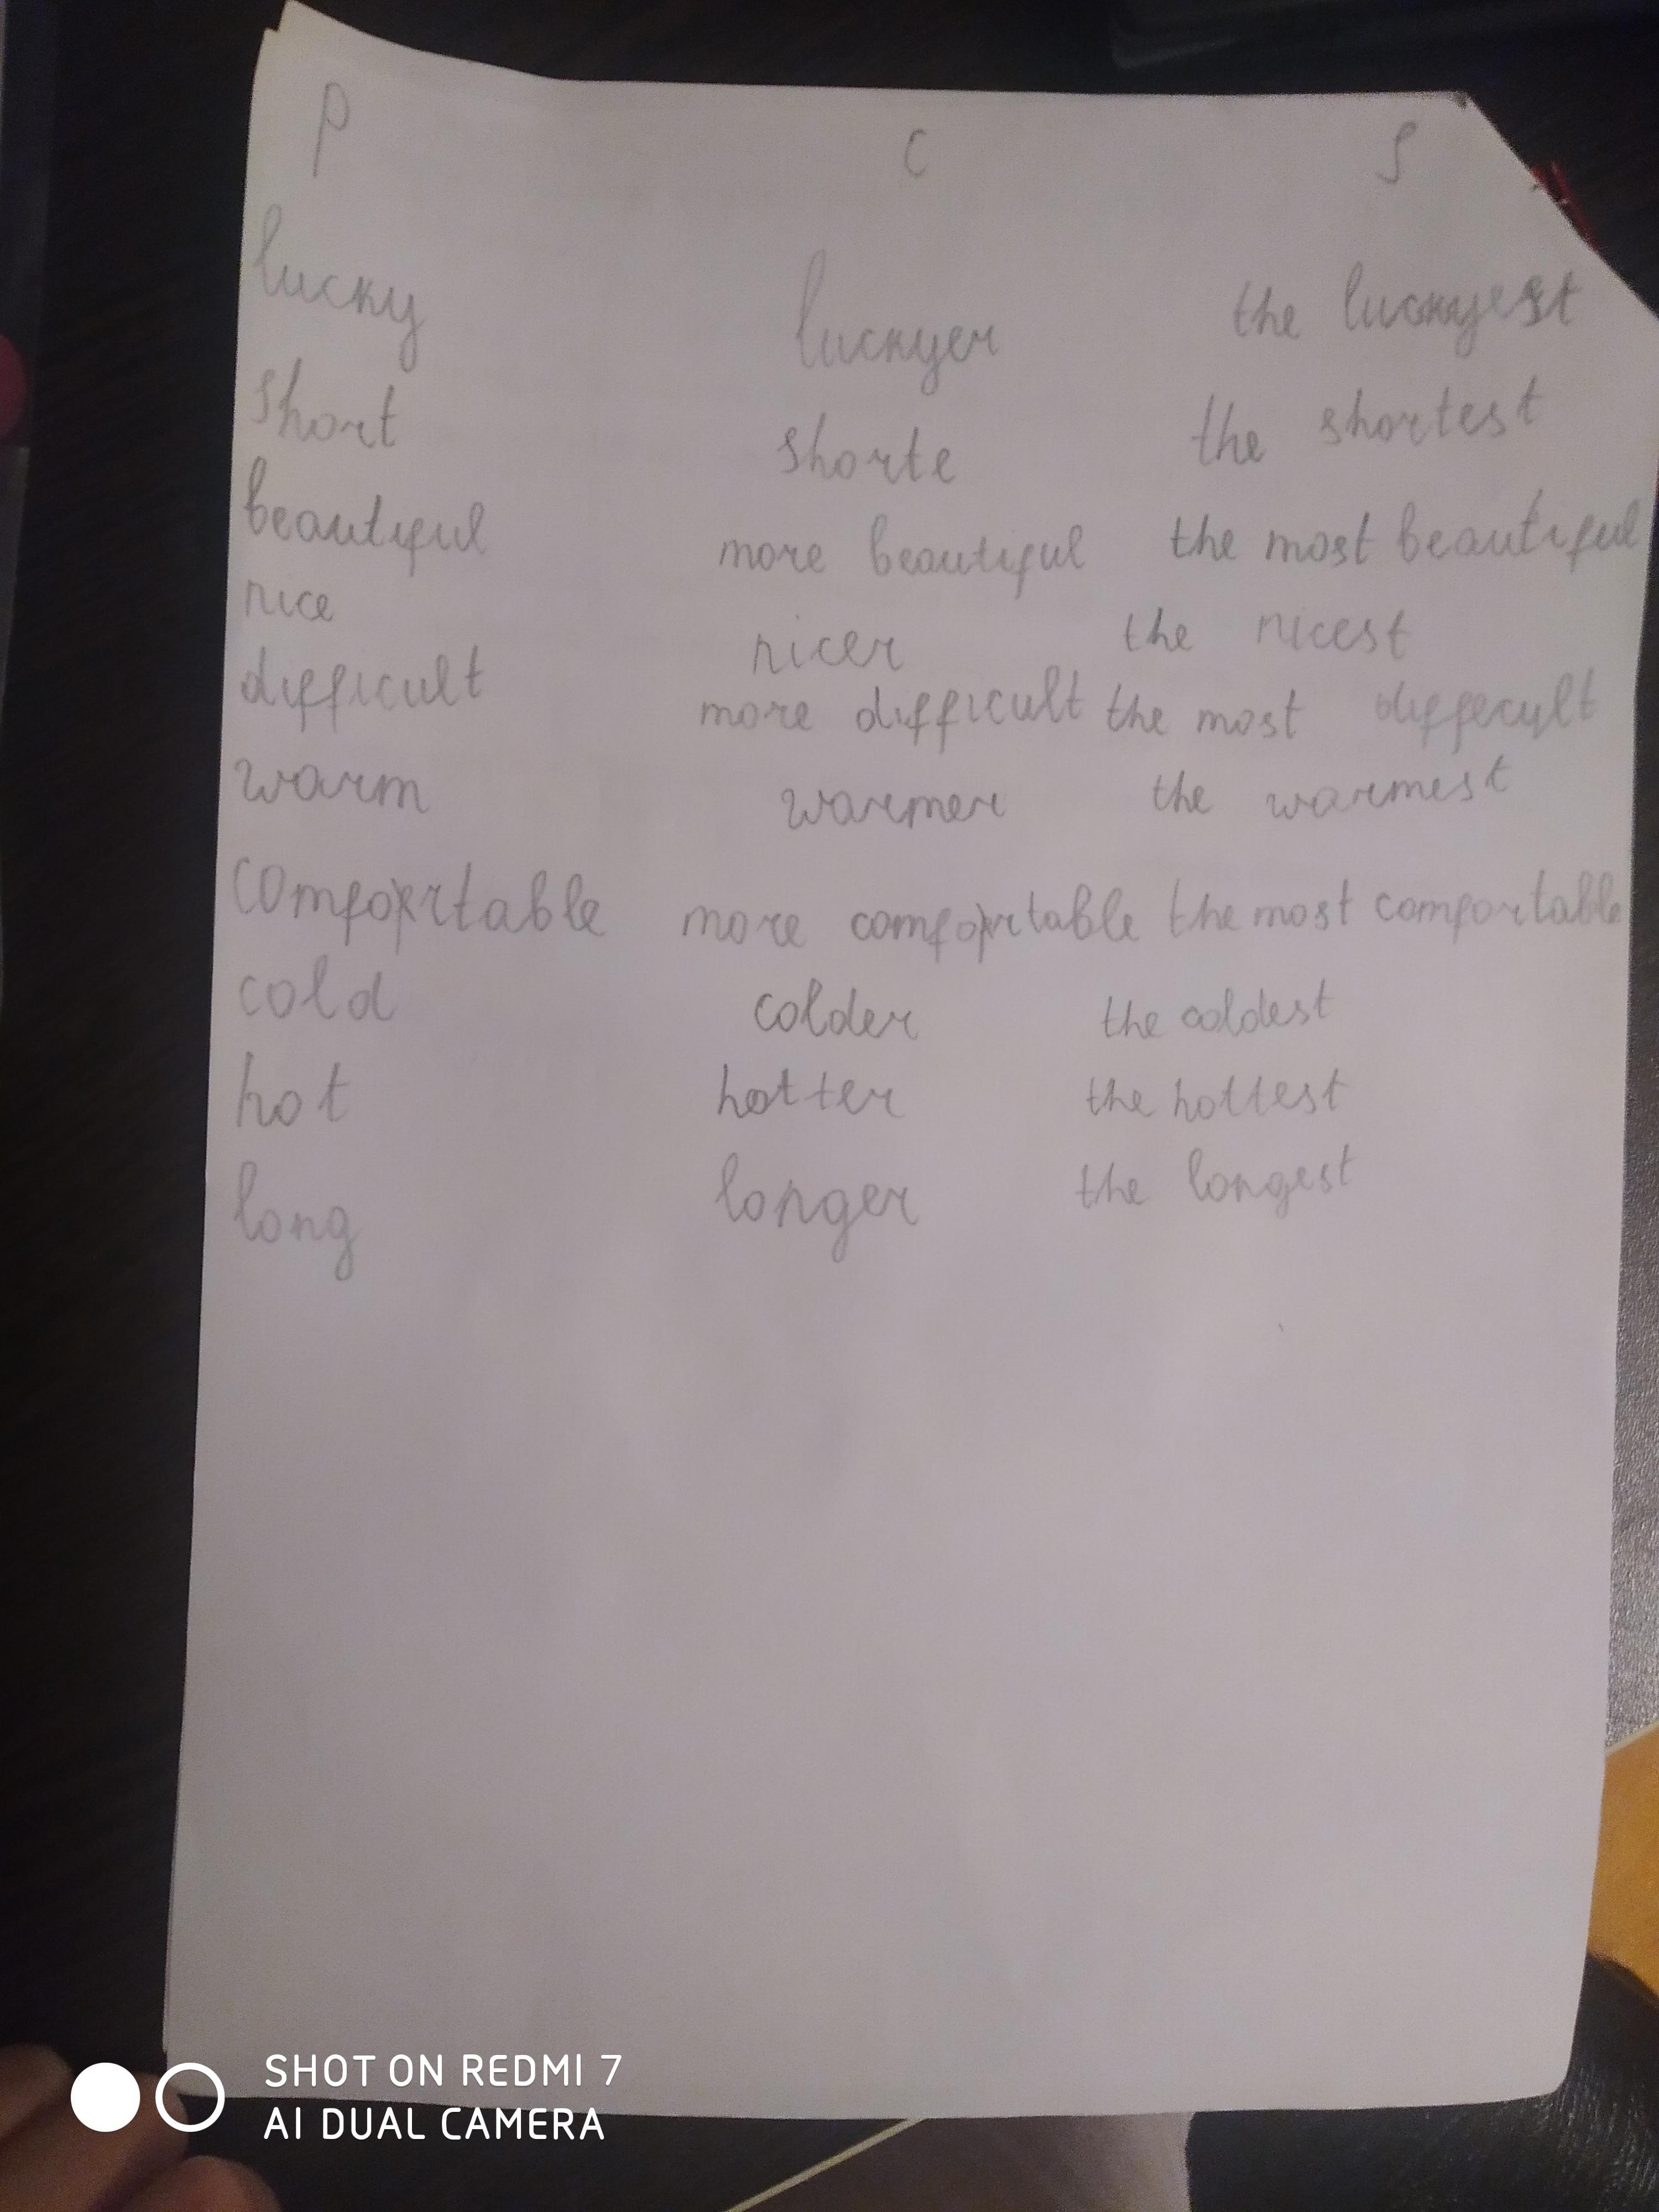 P C S
lucky luckyer the luckyest
short shorte the shortest
beautiful more beautiful the most beautiful
nice nicer the nicest
difficult more difficult the most diffecult
warm warmer the warmest
comfortable more comfortable the most comfortable
cold colder the coldest
hot hotter the hottest
long longer the longest
SHOT ON REDMI 7
AI DUAL CAMERA